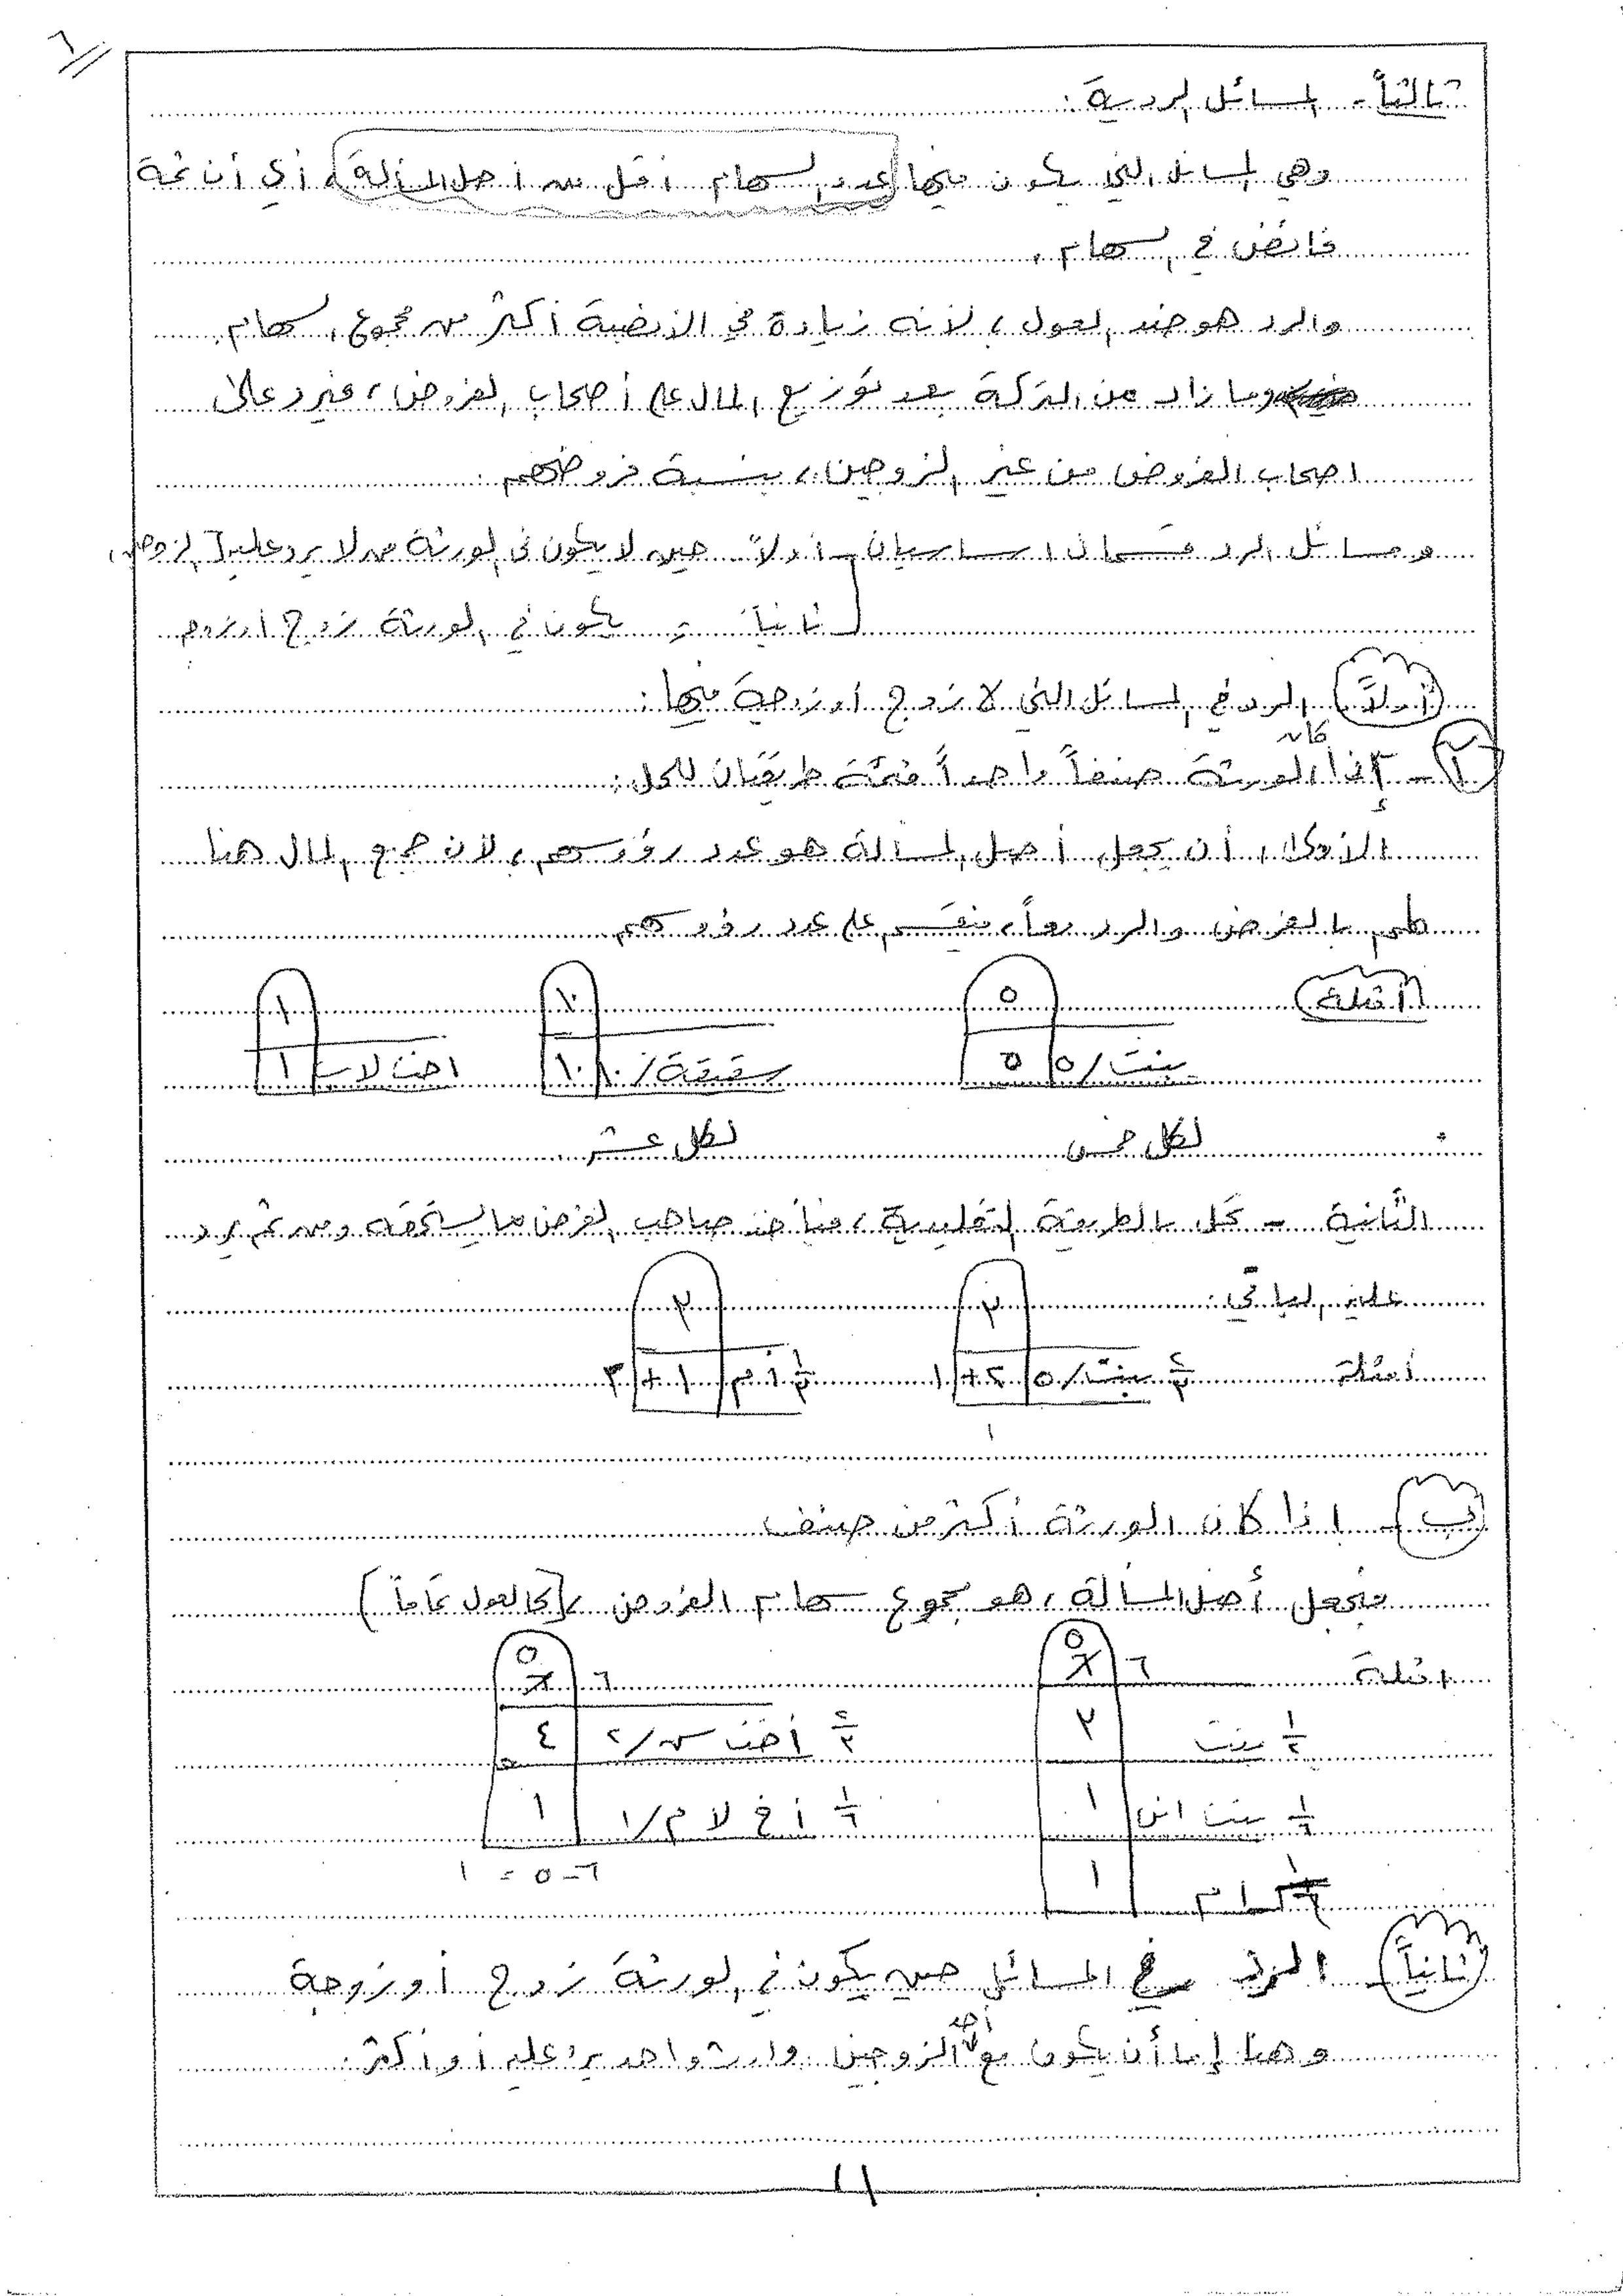 ٦
ثالثاً - المسائل الردية :
وهي المسائل التي يكون فيها عدد السهام أقل من أصل المسألة، أي أن ثمة
فائض في السهام.
والرد هو ضد العول، لأنه زيادة في الأنصبة أكثر من مجموع السهام
وما زاد من التركة بعد توزيع المال على أصحاب الفروض، فيرد على
اصحاب الفروض من غير الزوجين، بنسبة فروضهم.
ومسائل الرد قسمان اساسيان - أولاً حين لا يكون في الورثة من لا يرد عليه [الزوجين
ثانياً = يكون في الورثة زوج أو زوجة
أولاً الرد في المسائل التي لا زوج أو زوجة فيها :
أ - إذا كان الورثة صنفاً واحداً فثمة طريقتان للحل :
الأولى، أن يجعل أصل المسألة هو عدد رؤوسهم، لأن جميع المال هنا
لهم بالفرض والرد معاً، فيقسم على عدد رؤوسهم
أمثلة ٥ ١٠ ١
بنت/٥ ٥ شقيقة/١٠ ١٠ اخت لاب ١
لكل خمس لكل عشر
الثانية - تحل بالطريقة التقليدية، فيأخذ صاحب الفرض ما يستحقه ومن ثم يرد
عليه الباقي.
أمثلة ٣ ٣
٢/٣ بنت/٥ ٢+١ ١/٣ أم ١+٢
ب - اذا كان الورثة أكثر من صنف
فنجعل أصل المسألة، هو مجموع سهام الفروض (كالعول تماماً)
امثلة ٦ ٥ ٦ ٥
١/٢ بنت ٣ ٢/٣ أخت ش/٢ ٤
١/٦ بنت ابن ١ ١/٦ أخ لام/١ ١
١/٦ ام ١ ٦-٥=١
ثانياً - الرد في المسائل حين يكون في الورثة زوج أو زوجة
وهنا إما أن يكون مع أحد الزوجين وارث واحد يرد عليه أو أكثر.
١١